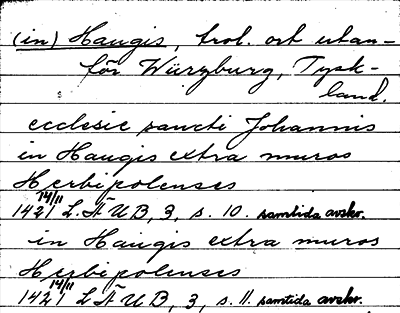 (in) Haugis, trol. ort utan-
för Würzburg, Tysk-
land.
ecclesie sancti Johannis
in Haugis extra muros
Herbipolenses
1421 14/11 L. Ä U B, 3, s. 10. samtida avskr.
in Haugis extra muros
Herbipolenses
1421 14/11 L Ä U B, 3, s. 11. samtida avskr.